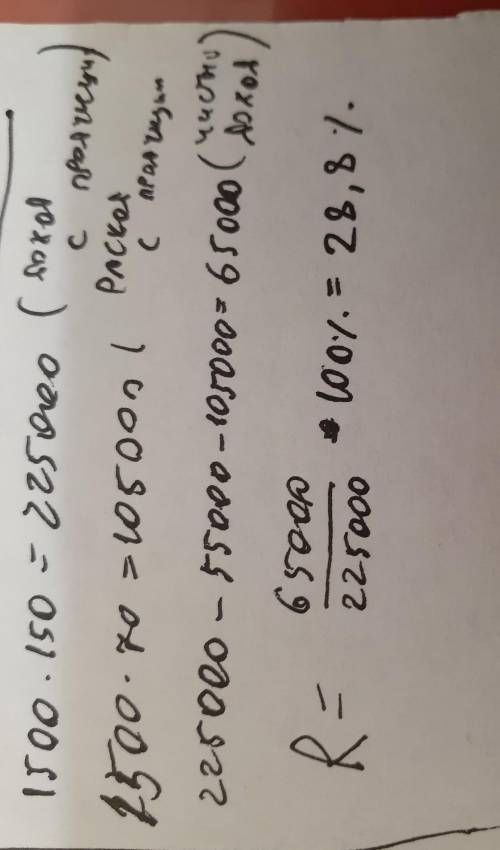 1500 · 150 = 225000 ( доход
с продукции)
1500 · 70 = 105000 ( расход
с продукции
225000 - 55000 - 105000 = 65000 ( чистый
доход)
R = 65000 / 225000 * 100% = 28,8%.